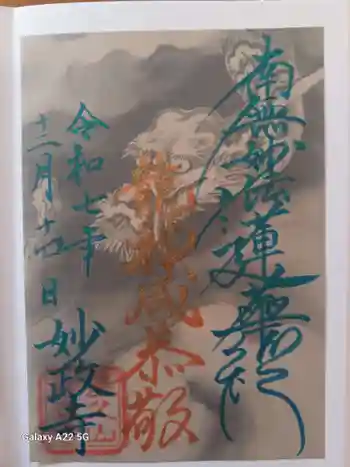 南無妙法蓮華経
龍神咸恭敬
令和七年
十二月 日 妙政寺
Galaxy A22 5G